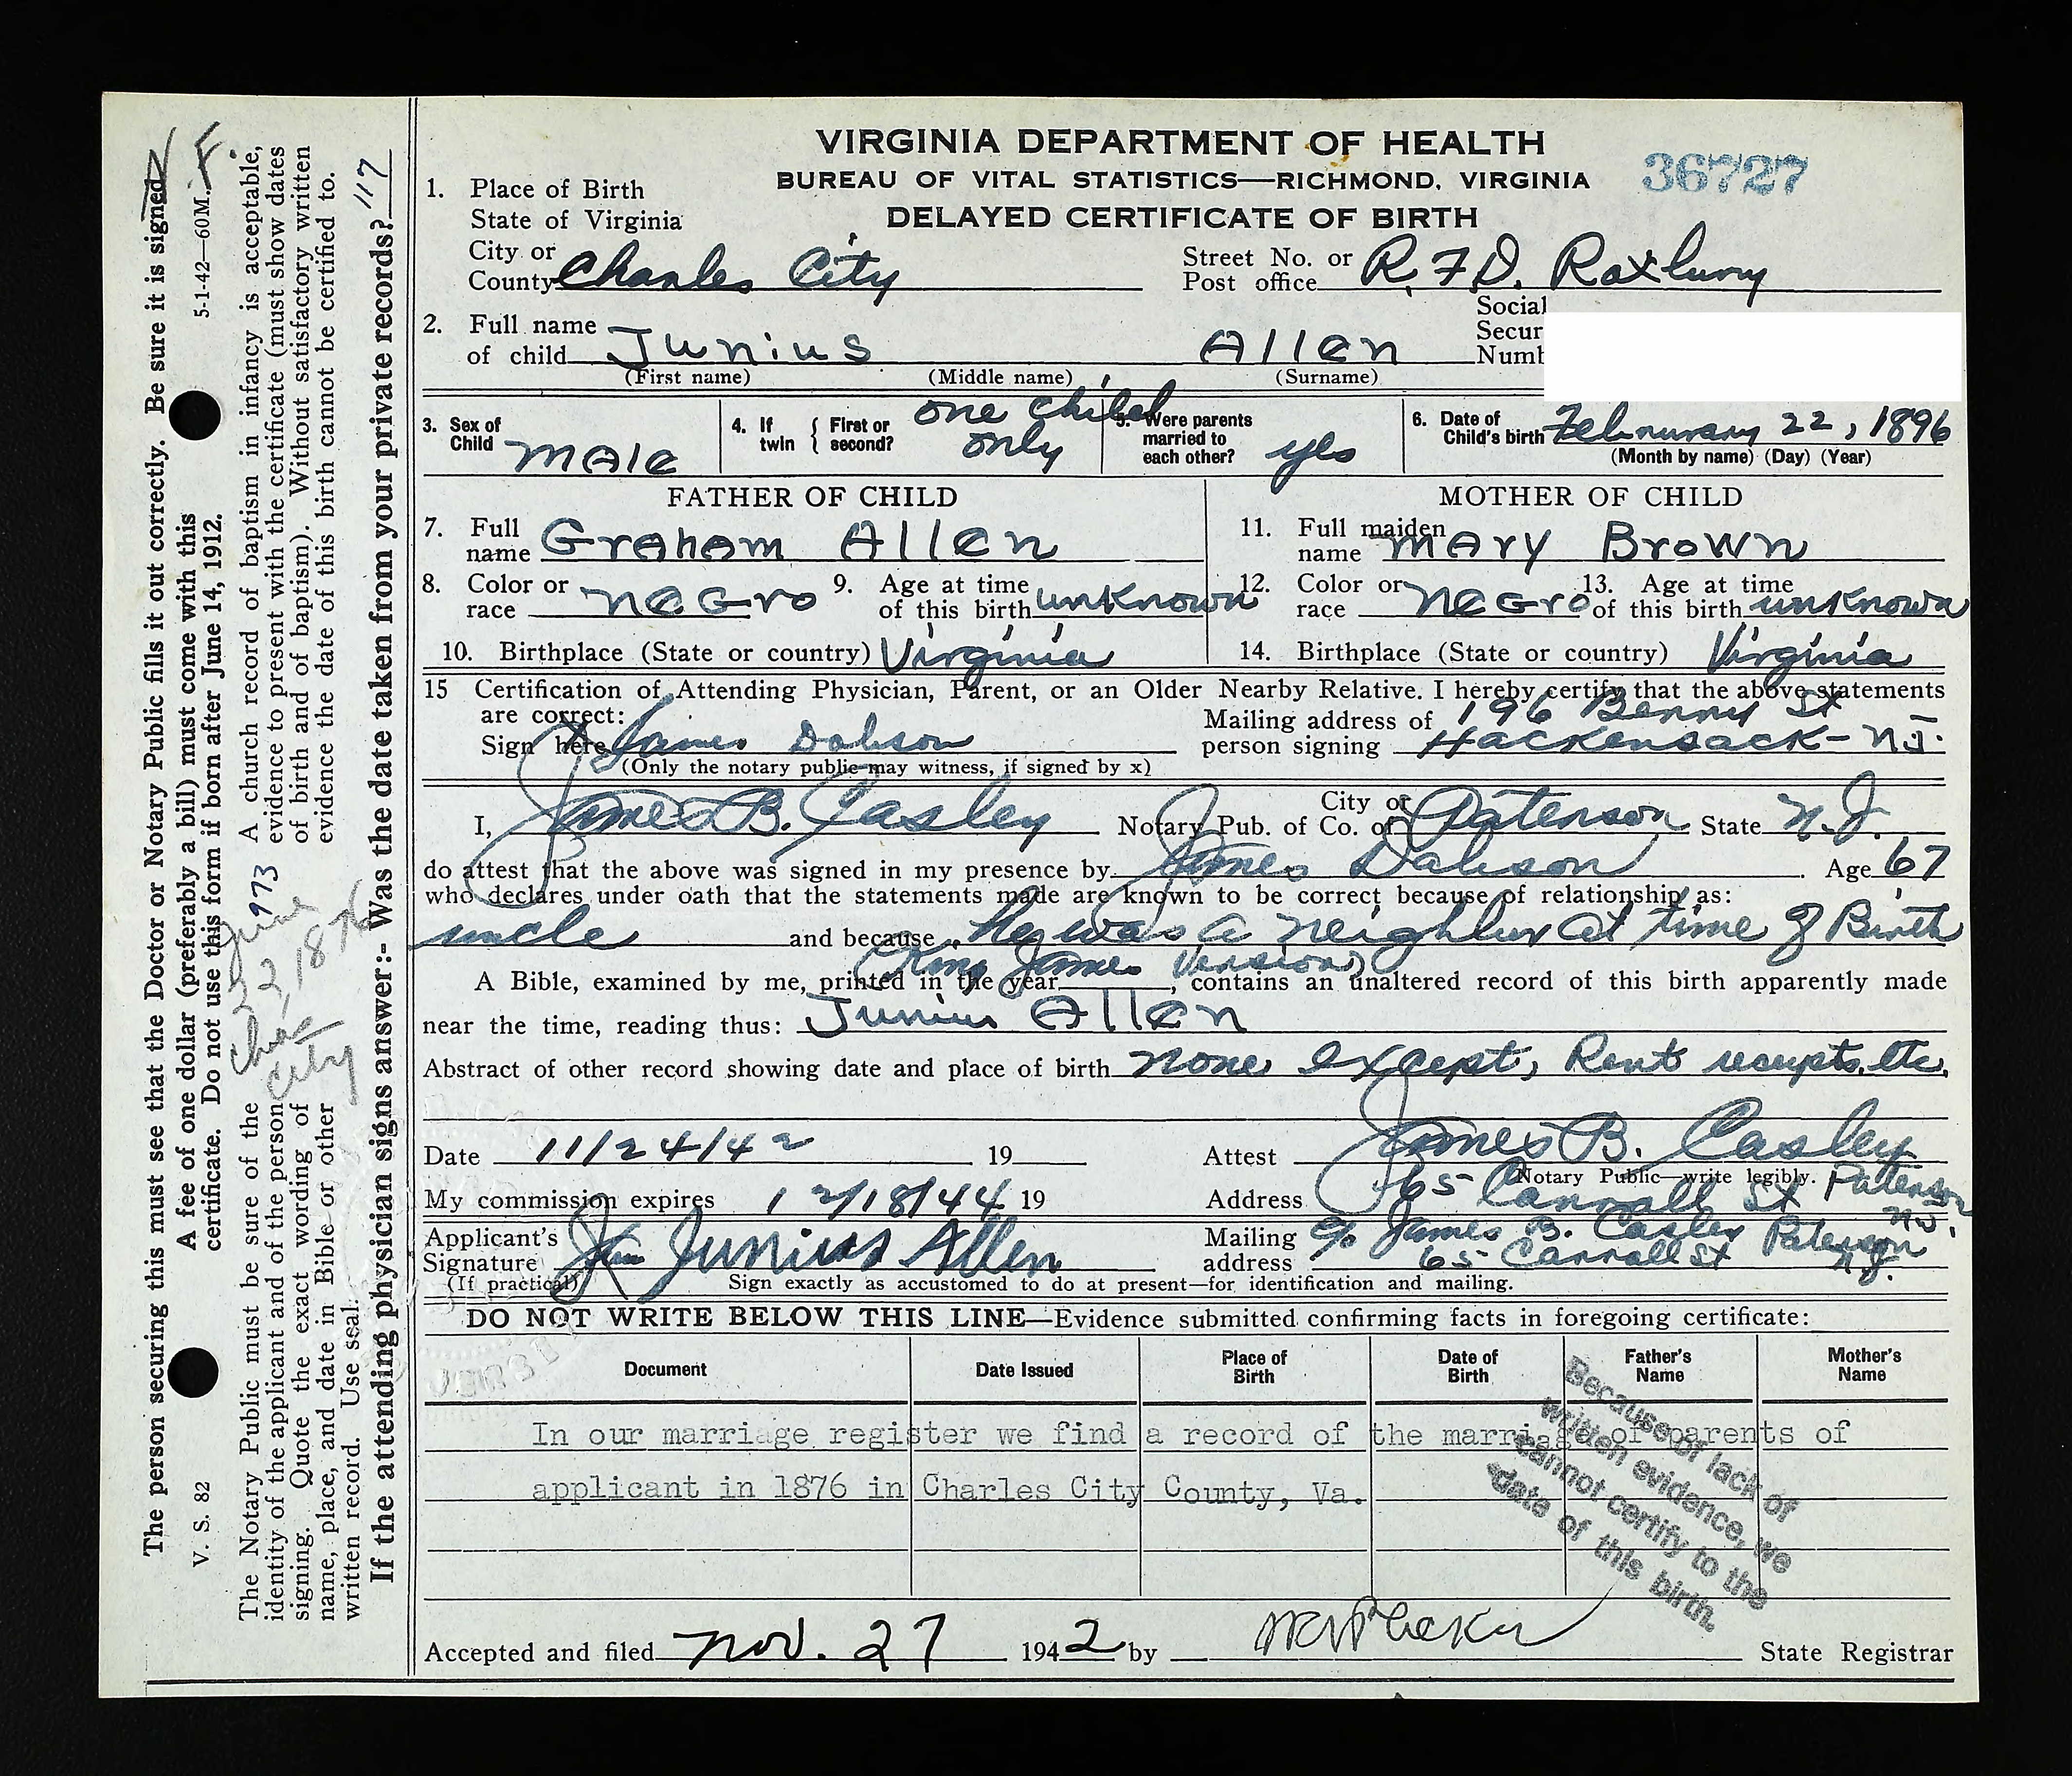 VIRGINIA DEPARTMENT OF HEALTH
BUREAU OF VITAL STATISTICS—RICHMOND, VIRGINIA
36727
DELAYED CERTIFICATE OF BIRTH
1. Place of Birth
State of Virginia
City or County Charles City Street No. or Post office R.F.D. Roxbury
2. Full name of child Junius Allen Social Secur Numb
(First name) (Middle name) (Surname)
3. Sex of Child Male 4. If twin { First or second? one child only 5. Were parents married to each other? yes 6. Date of Child's birth Februrary 22, 1896
(Month by name) (Day) (Year)
FATHER OF CHILD MOTHER OF CHILD
7. Full name Graham Allen 11. Full maiden name Mary Brown
8. Color or race Negro 9. Age at time of this birth unknown 12. Color or race Negro 13. Age at time of this birth unknown
10. Birthplace (State or country) Virginia 14. Birthplace (State or country) Virginia
15 Certification of Attending Physician, Parent, or an Older Nearby Relative. I hereby certify that the above statements
are correct: Mailing address of 196 St
Sign here James Dobson person signing Hackensack-N.J.
(Only the notary public may witness, if signed by x)
I, James B. Casley Notary Pub. of City or Co. of Paterson State N.J.
do attest that the above was signed in my presence by James Dobson. Age 67
who declares under oath that the statements made are known to be correct because of relationship as:
uncle and because he was a neighbur at time of Birth
(King James Version)
A Bible, examined by me, printed in the year , contains an unaltered record of this birth apparently made
near the time, reading thus: Junius Allen
Abstract of other record showing date and place of birth None except, Rent receipts, etc.
Date 11/24/42 19 Attest James B. Casley
Notary Public—write legibly.
My commission expires 12/18/44 19 Address 65 Carroll St Paterson N.J.
Applicant's Signature Junius Allen Mailing address c/o James B. Casley 65 Carroll St Paterson N.J.
(If practical) Sign exactly as accustomed to do at present—for identification and mailing.
DO NOT WRITE BELOW THIS LINE—Evidence submitted confirming facts in foregoing certificate:
Document Date Issued Place of Birth Date of Birth Father's Name Mother's Name
In our marriage register we find a record of the marriage of parents of
applicant in 1876 in Charles City County, Va.
Because of lack of
written evidence, we
cannot certify to the
date of this birth.
Accepted and filed Nov. 27 1942 by State Registrar
The person securing this must see that the Doctor or Notary Public fills it out correctly. Be sure it is signed
N.F.
A fee of one dollar (preferably a bill) must come with this
certificate. Do not use this form if born after June 14, 1912.
V. S. 82
5-1-42—60M.
The Notary Public must be sure of the
identity of the applicant and of the person
signing. Quote the exact wording of
name, place, and date in Bible or other
written record. Use seal.
973
June
22, 1876
Chas
City
A church record of baptism in infancy is acceptable,
evidence to present with the certificate (must show dates
of birth and of baptism). Without satisfactory written
evidence the date of this birth cannot be certified to.
If the attending physician signs answer:- Was the date taken from your private records? 117